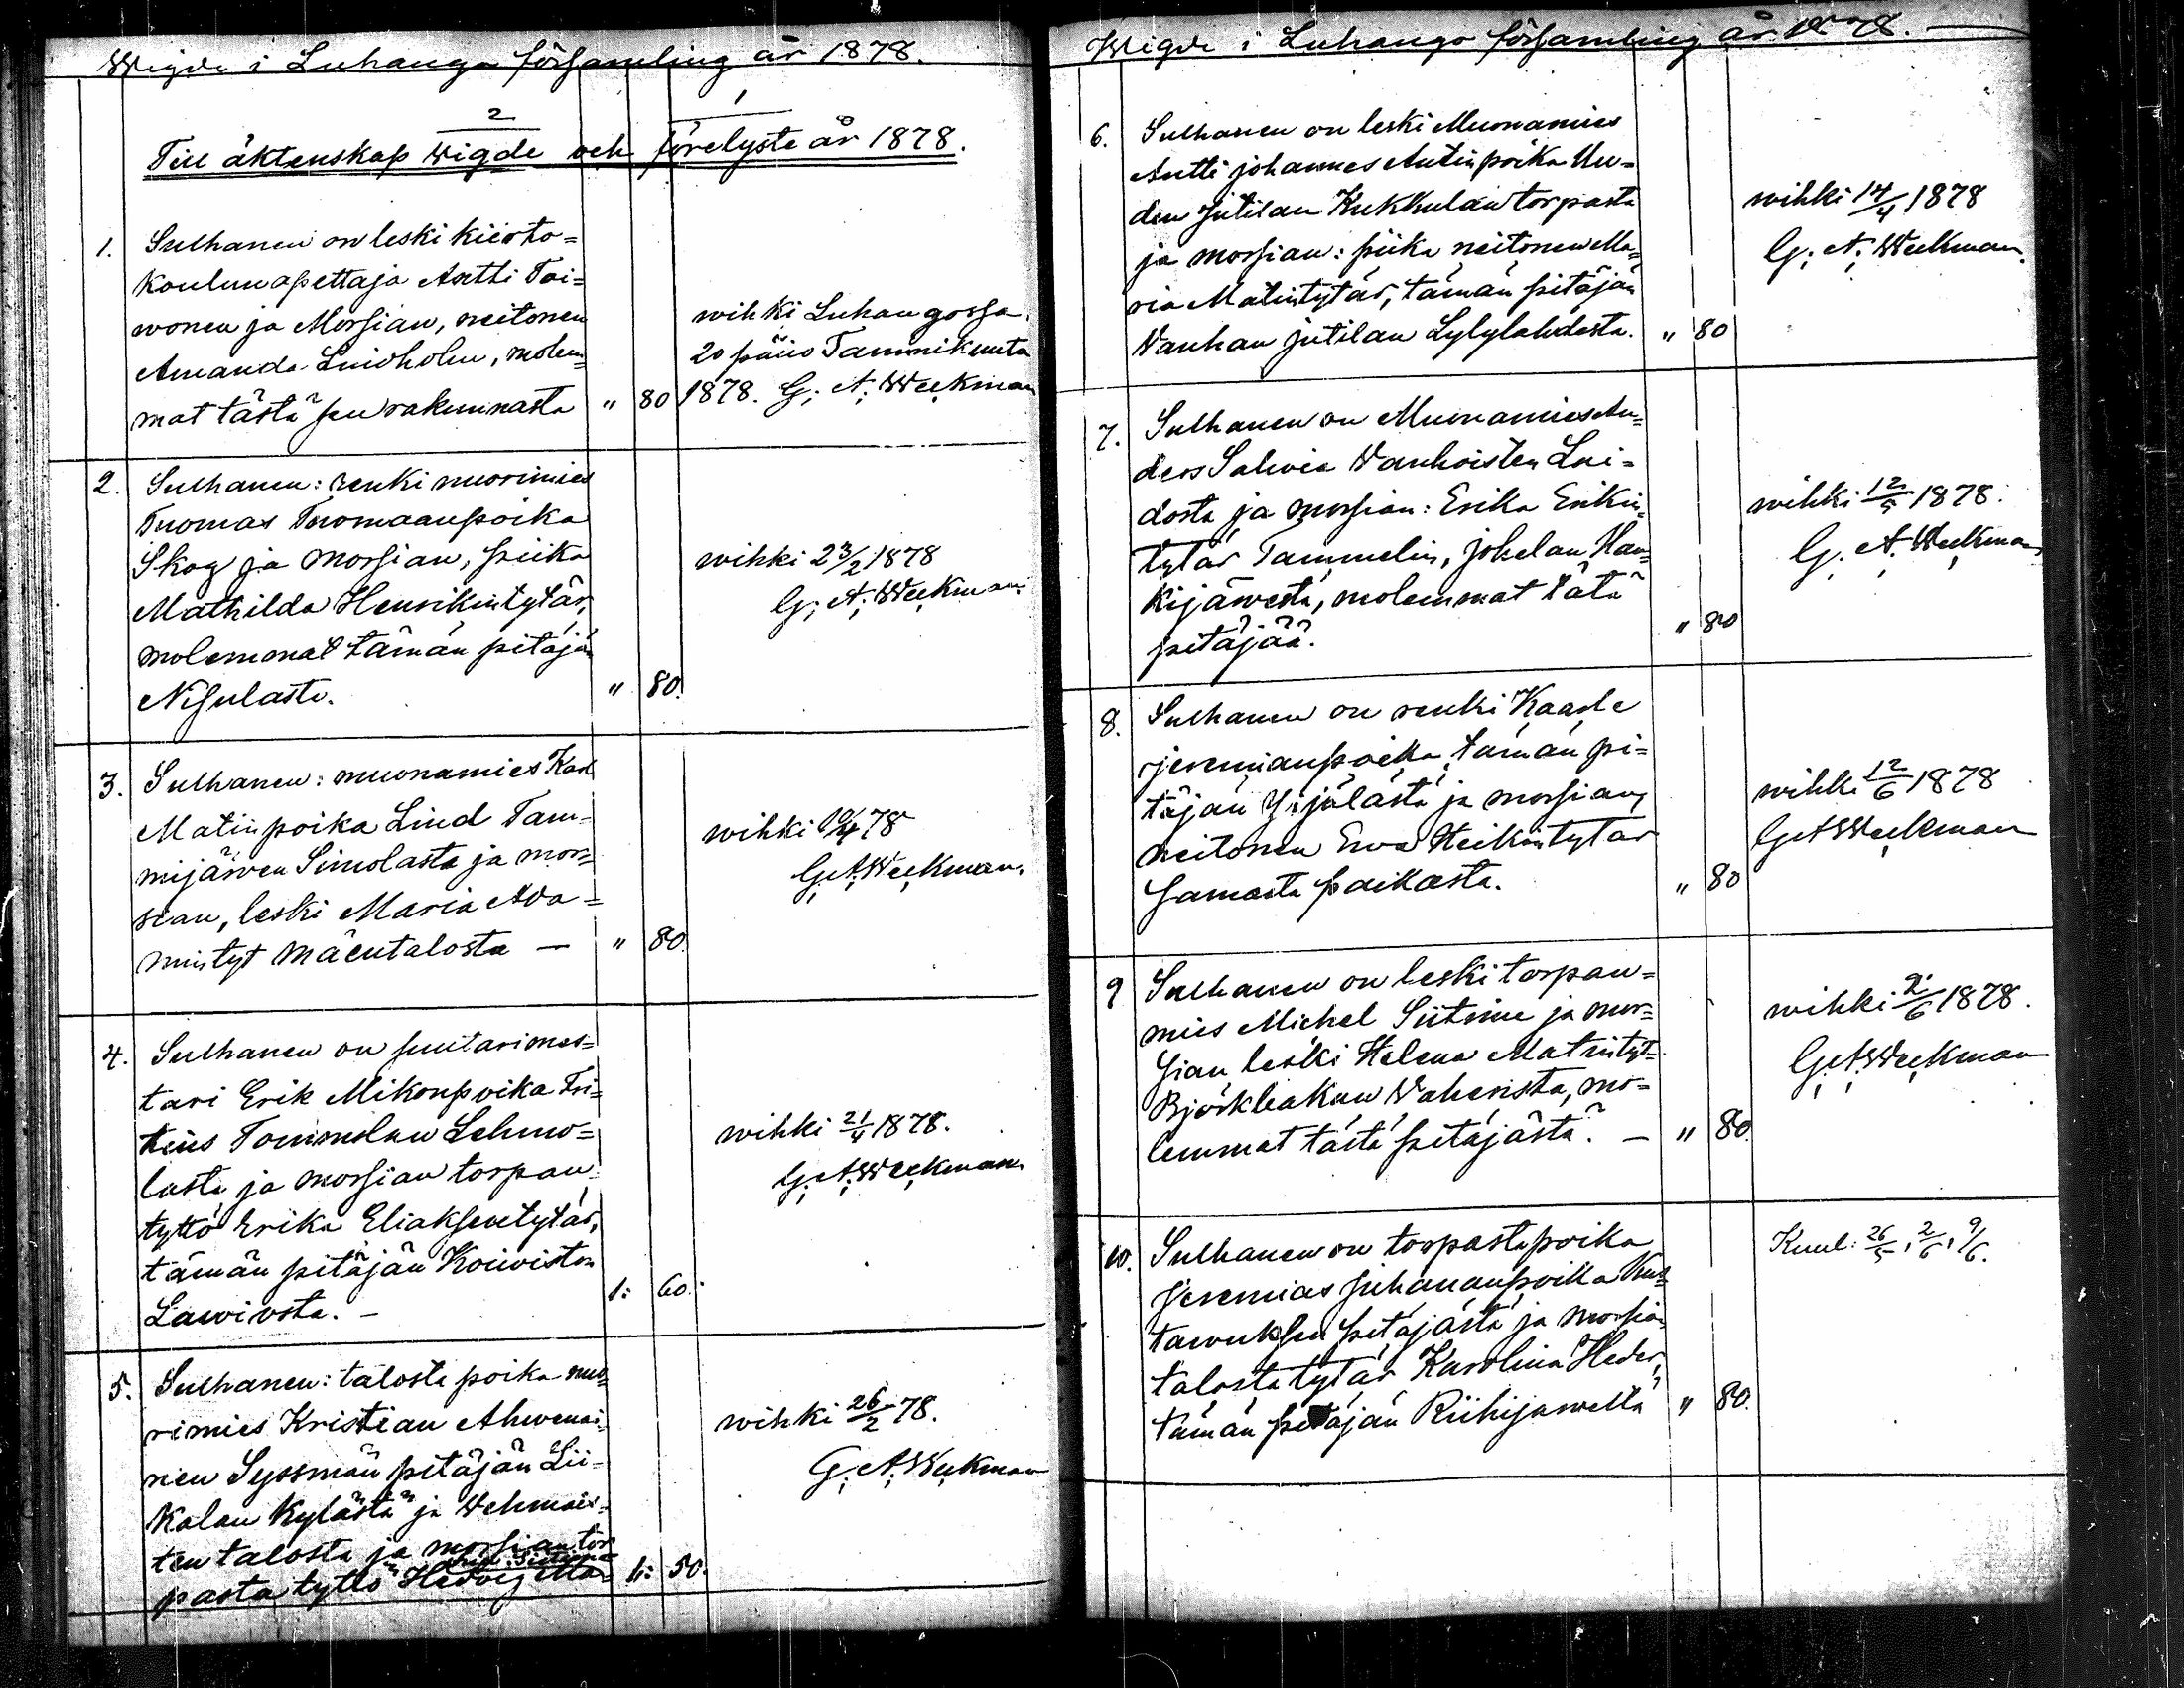 Wigde i Luhanga församling år 1878.
2
1
Till äktenskap wigde och förelyste år 1878.
1. Sulhanen on leski kierto=
koulunopettaja Antti Toi=
wonen ja Morsian, neitonen
Amanda Lindholm, molem=
mat tästä seurakunnasta " 80
wihki Luhangossa
20 päiw Tammikuuta
1878. G. A. Weekman
2. Sulhanen: renki nuorimies
Tuomas Tuomaanpoika
Skog ja morsian, piika
Mathilda Henrikintytär,
molemmat tämän pitäjän
Nisulasta. " 80.
wihki 23/2 1878
G. A. Weekman
3. Sulhanen: muonamies Karl
Matinpoika Lind Tam=
mijärwen Simolasta ja mor=
sian, leski Maria Ada=
mintyt Mäentalosta — " 80.
wihki 10/4 78
G. A. Weekman.
4. Sulhanen on suutarimes=
tari Erik Mikonpoika
Tommolan Lehmo=
lasta ja morsian torpan
tyttö Erika Eliaksentytär,
tämän pitäjän Koiwiston
1: 60.
wihki 21/4 1878.
G. A. Weekman
5. Sulhanen: talosta poika nuo=
rimies Kristian Ahwenai=
nen Syssmän pitäjän Lii=
kolan kylästä ja Wehmais=
ten talosta ja morsian tor=
pasta tyttö Hedvig 1: 50.
wihki 26/2 78.
G. A. Weekman
Wigde i Luhango församling år 1878. —
6. Sulhanen on leski Muonamies
Antti Johannes Antinpoika Uu=
den Jutilan Kukkulan torpasta
ja morsian: piika neitonen Ma=
ria Matintytär, tämän pitäjän
Wanhan Jutilan Lylylahdesta. " 80
wihki 14/4 1878
G. A. Weekman.
7. Sulhanen on Muonamies An=
ders Salwia Wanhoisten Lai=
dosta ja morsian: Erika Erikin=
tytär Tammelin, Jokelan Han=
kijärwestä, molemmat tätä
pitäjää. " 80
wihki 12/5 1878.
G. A. Weekman
8. Sulhanen on renki Kaarle
Jeremianpoika, tämän pi=
täjän ja morsian,
neitonen Ewa Heikintytär
samasta paikasta. " 80
wihki 12/6 1878
G A Weekman
9 Sulhanen on leski torpan=
mies Michel Siitoine ja mor=
sian leski Helena Matintyt=
Björkbakan Waherista, mo=
lemmat tästä pitäjästä. — " 80.
wihki 2/6 1878.
G. A. Weekman
10. Sulhanen on torpasta poika
Jeremias Juhananpoika Kus=
tawuksen pitäjästä ja morsian
talosta tytär Karolina Heder,
tämän pitäjän Riihijärweltä " 80.
Kuul: 26/5, 2/6, 9/6.